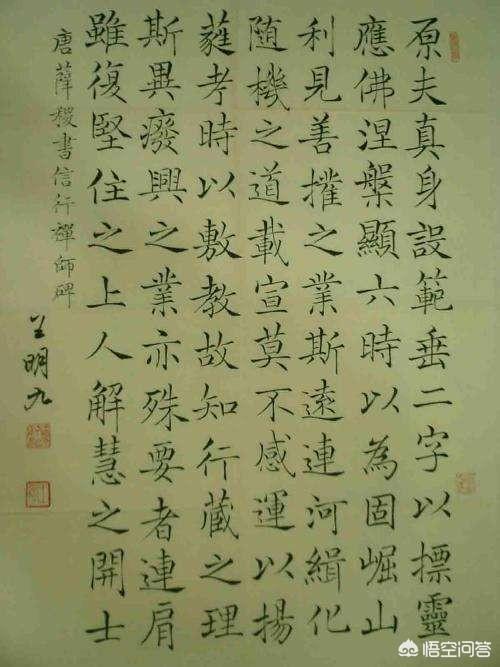 原夫真身設範垂二字以摽靈
應佛涅槃顯六時以為固崛山
利見善摧之業斯遠連河緝化
随機之道載宣莫不感運以揚
蕤考時以敷教故知行藏之理
斯異癈興之業亦殊要者連肩
雖復堅住之上人解慧之開士
唐薛稷書信行禪師碑
王明九
悟空问答